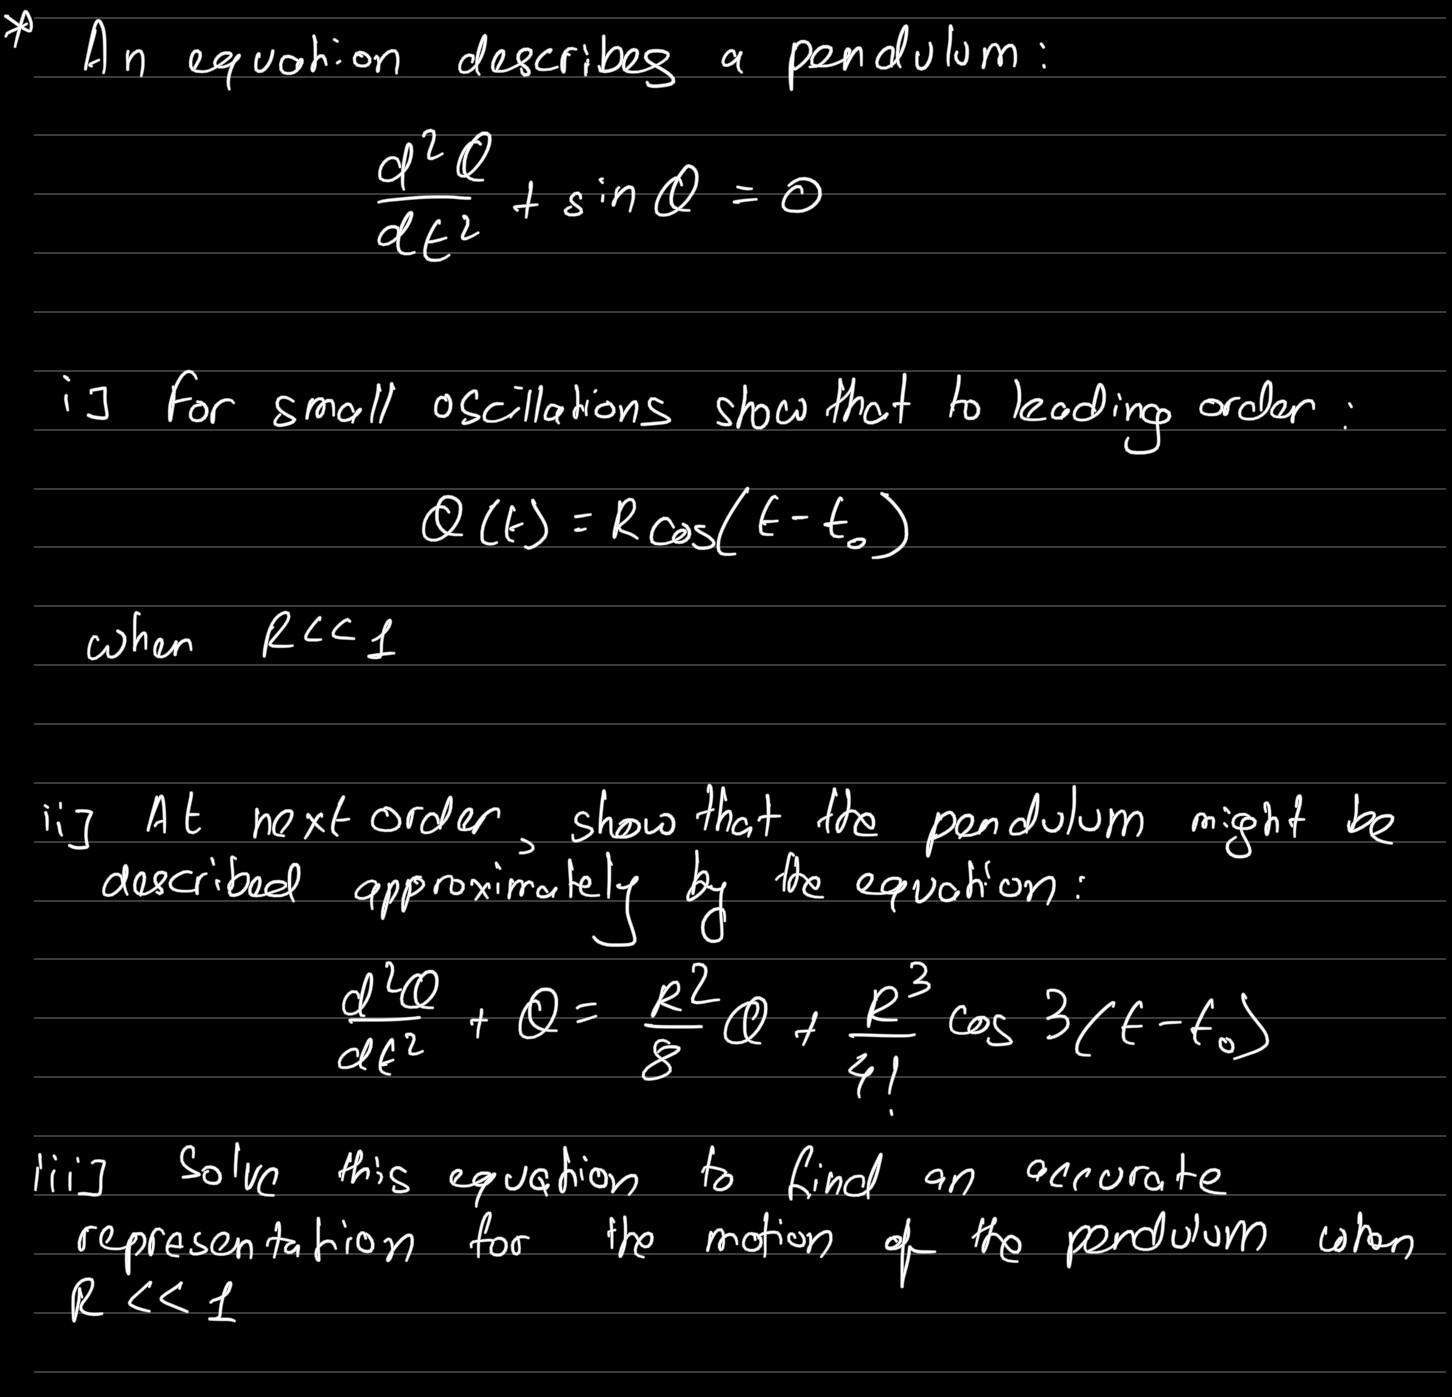 * An equation describes a pendulum:
d²Q/dt² + sin Q = 0
i] For small oscillations show that to leading order:
Q(t) = R cos(t - t₀)
when R << 1
ii] At next order, show that the pendulum might be
described approximately by the equation:
d²Q/dt² + Q = R²/8 Q + R³/4! cos 3(t - t₀)
iii] Solve this equation to find an accurate
representation for the motion of the pendulum when
R << 1